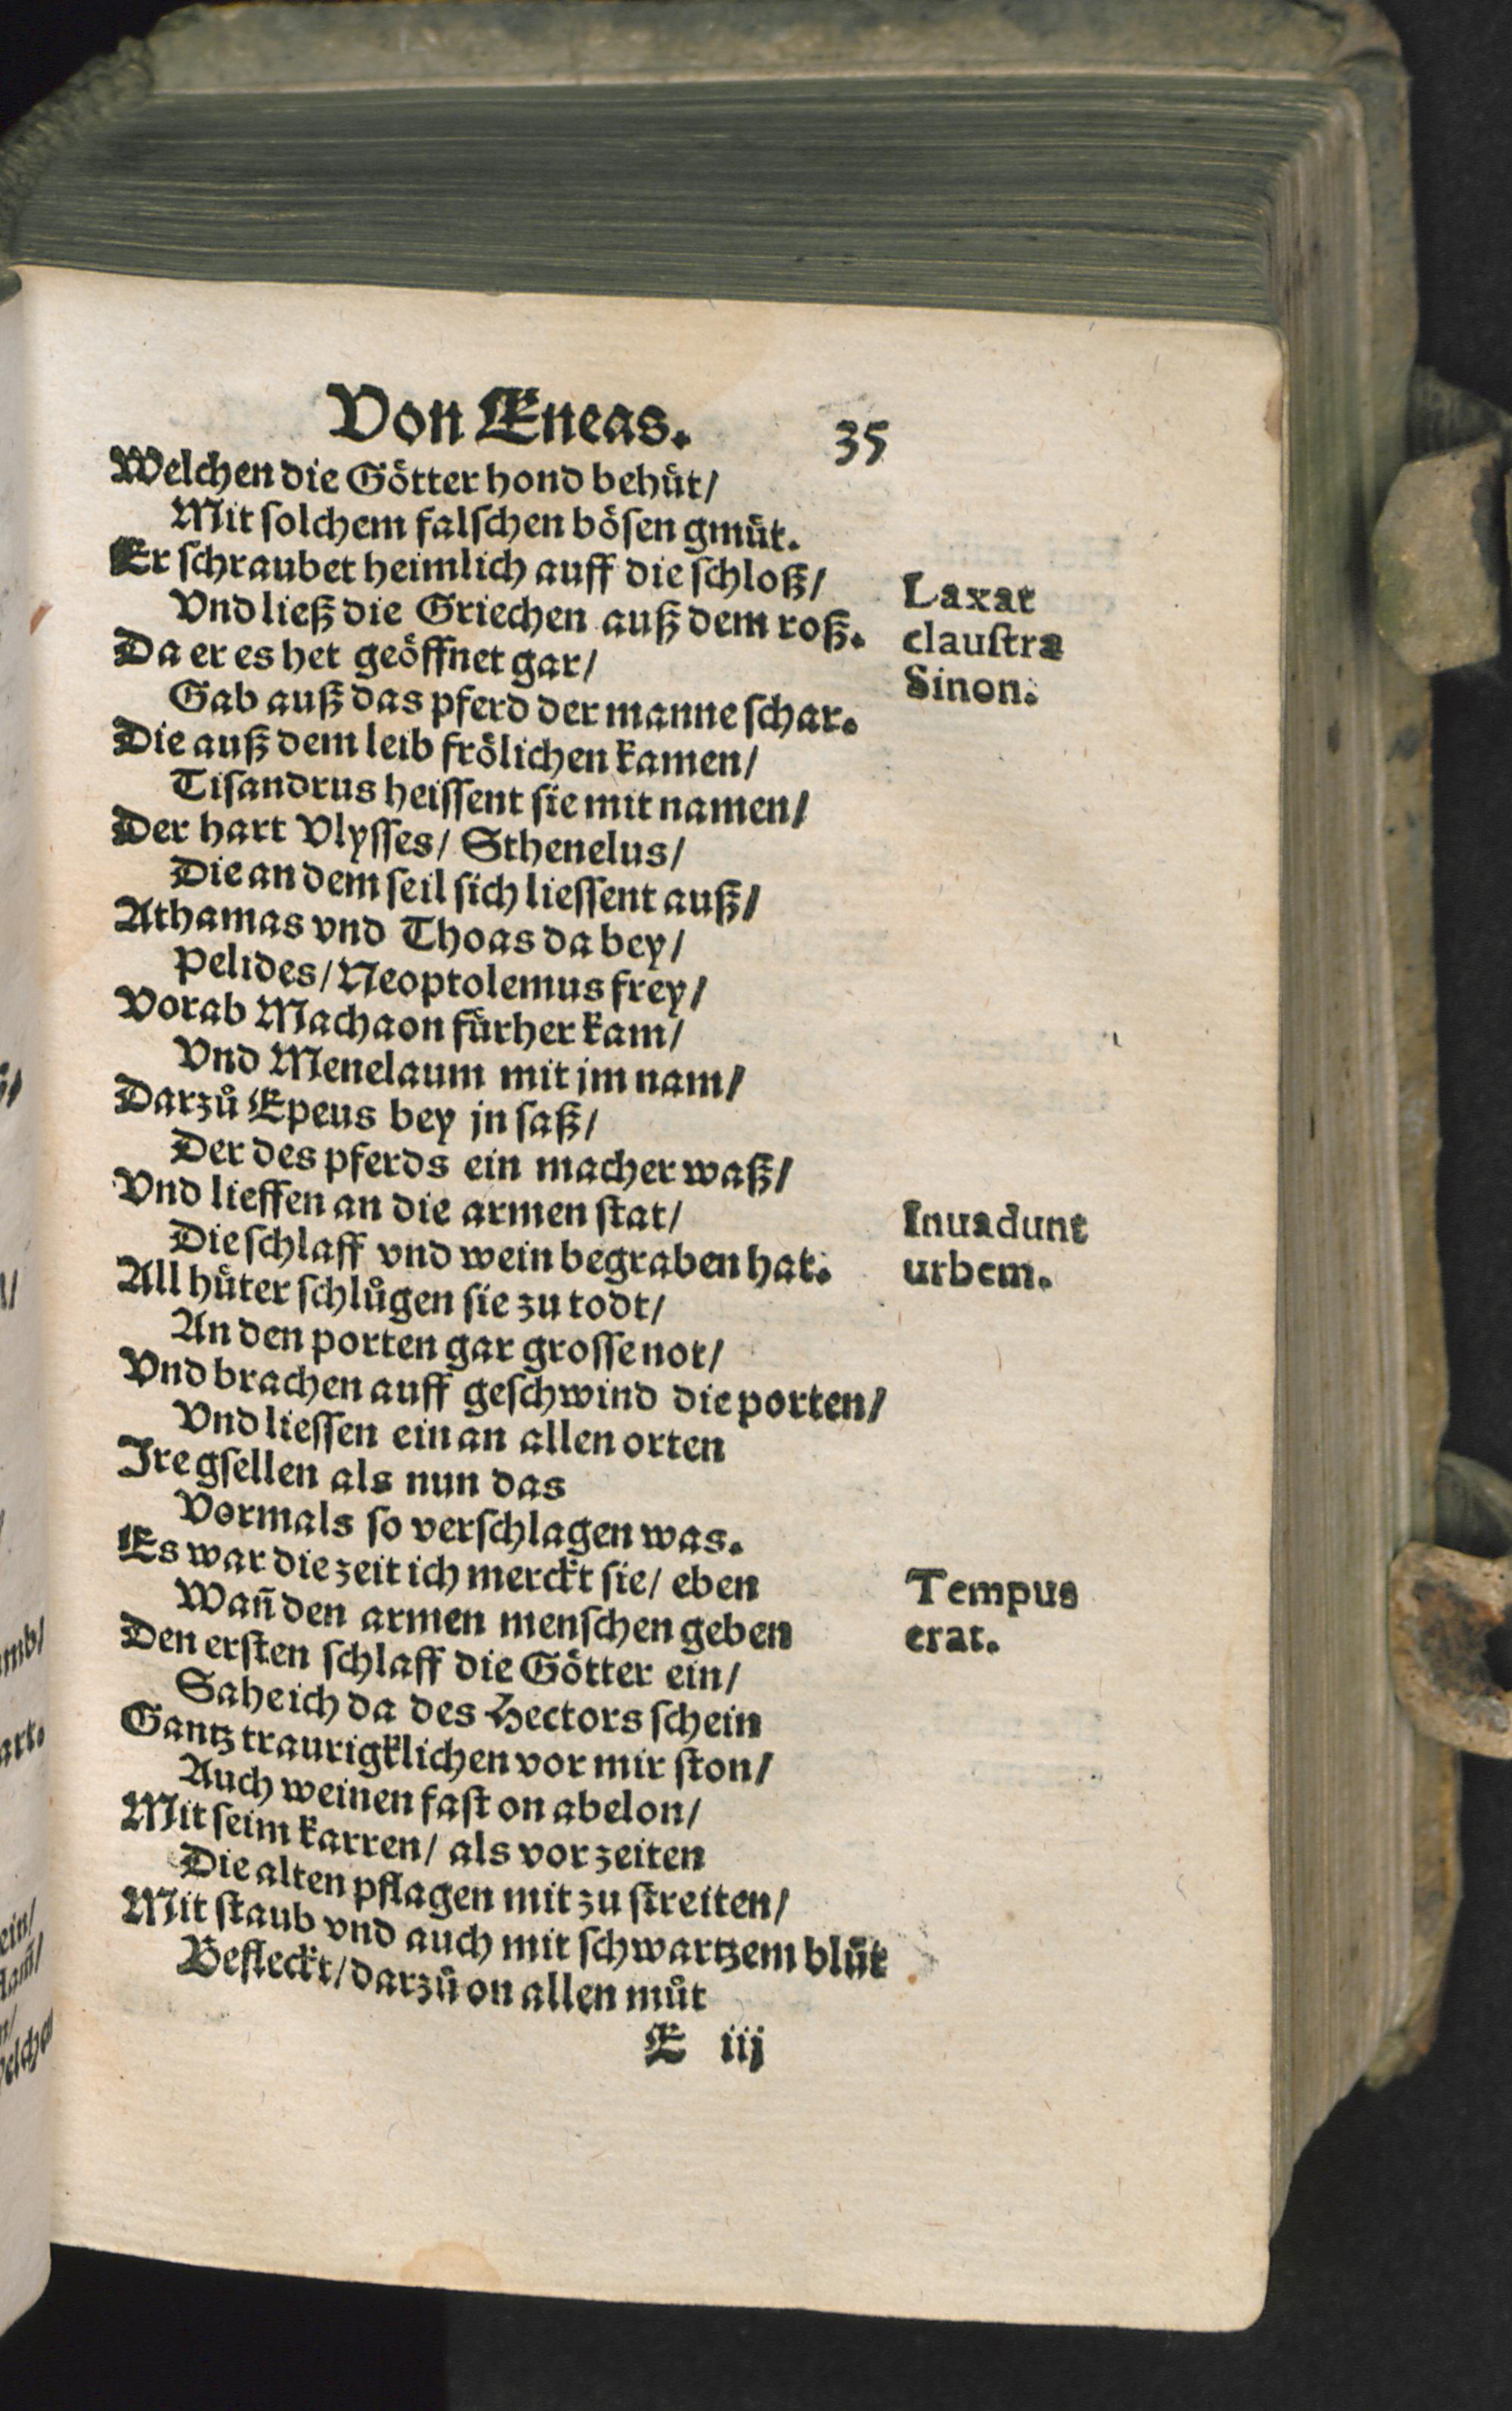 Von Eneas. 35
Welchen die Goͤtter hond behuͤt/
Mit ſolchem falſchen boͤſen gmuͤt.
Er ſchraubet heimlich auff die ſchloß/
Vnd ließ die Griechen auß dem roß.
Da er es het geoͤffnet gar/
Gab auß das pferd der manne ſchar.
Die auß dem leib froͤlichen kamen/
Tiſandrus heiſſent ſie mit namen/
Der hart Vlyſſes/ Sthenelus/
Die an dem ſeil ſich lieſſent auß/
Athamas vnd Thoas da bey/
Pelides/ Neoptolemus frey/
Vorab Machaon fuͤrher kam/
Vnd Menelaum mit im nam/
Darzuͦ Epeus bey jn ſaß/
Der des pferds ein macher waß/
Vnd lieffen an die armen ſtat/
Die ſchlaff vnd wein begraben hat.
All huͤter ſchluͦgen ſie zu todt/
An den porten gar groſſe not/
Vnd brachen auff geſchwind die porten/
Vnd lieſſen ein an allen orten
Ire gſellen als nun das
Vormals ſo verſchlagen was.
Es war die zeit ich merckt ſie/ eben
Wañ den armen menſchen geben
Den erſten ſchlaff die Goͤtter ein/
Sahe ich da des Hectors ſchein
Gantz traurigklichen vor mir ſton/
Auch weinen faſt on abelon/
Mit ſeim karren/ als vor zeiten
Die alten pflagen mit zu ſtreiten/
Mit ſtaub vnd auch mit ſchwartzem bluͦt
Befleckt/ darzuͦ on allen muͦt
E iij
Laxat
clauſtra
Sinon.
Inuadunt
urbem.
Tempus
erat.